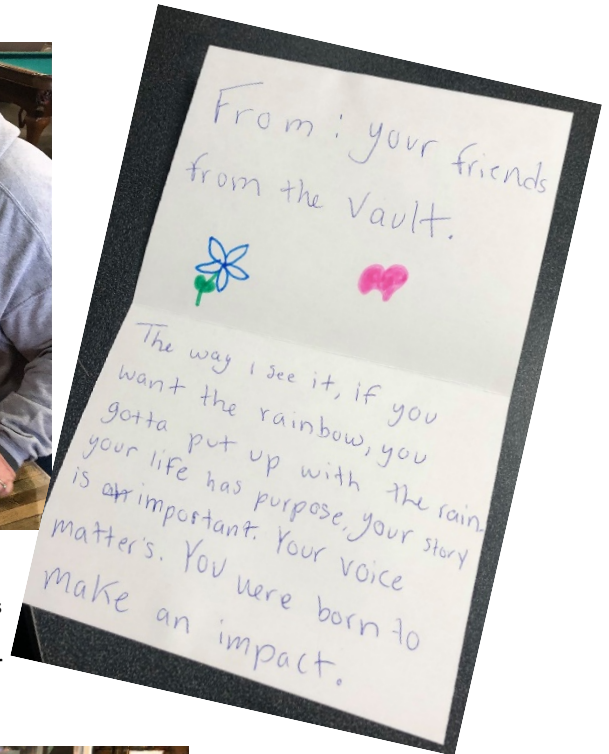 From : your friends
from the Vault.
The way I see it, if you
want the rainbow, you
gotta put up with the rain.
your life has purpose, your story
is important. Your voice
matter's. You were born to
make an impact.